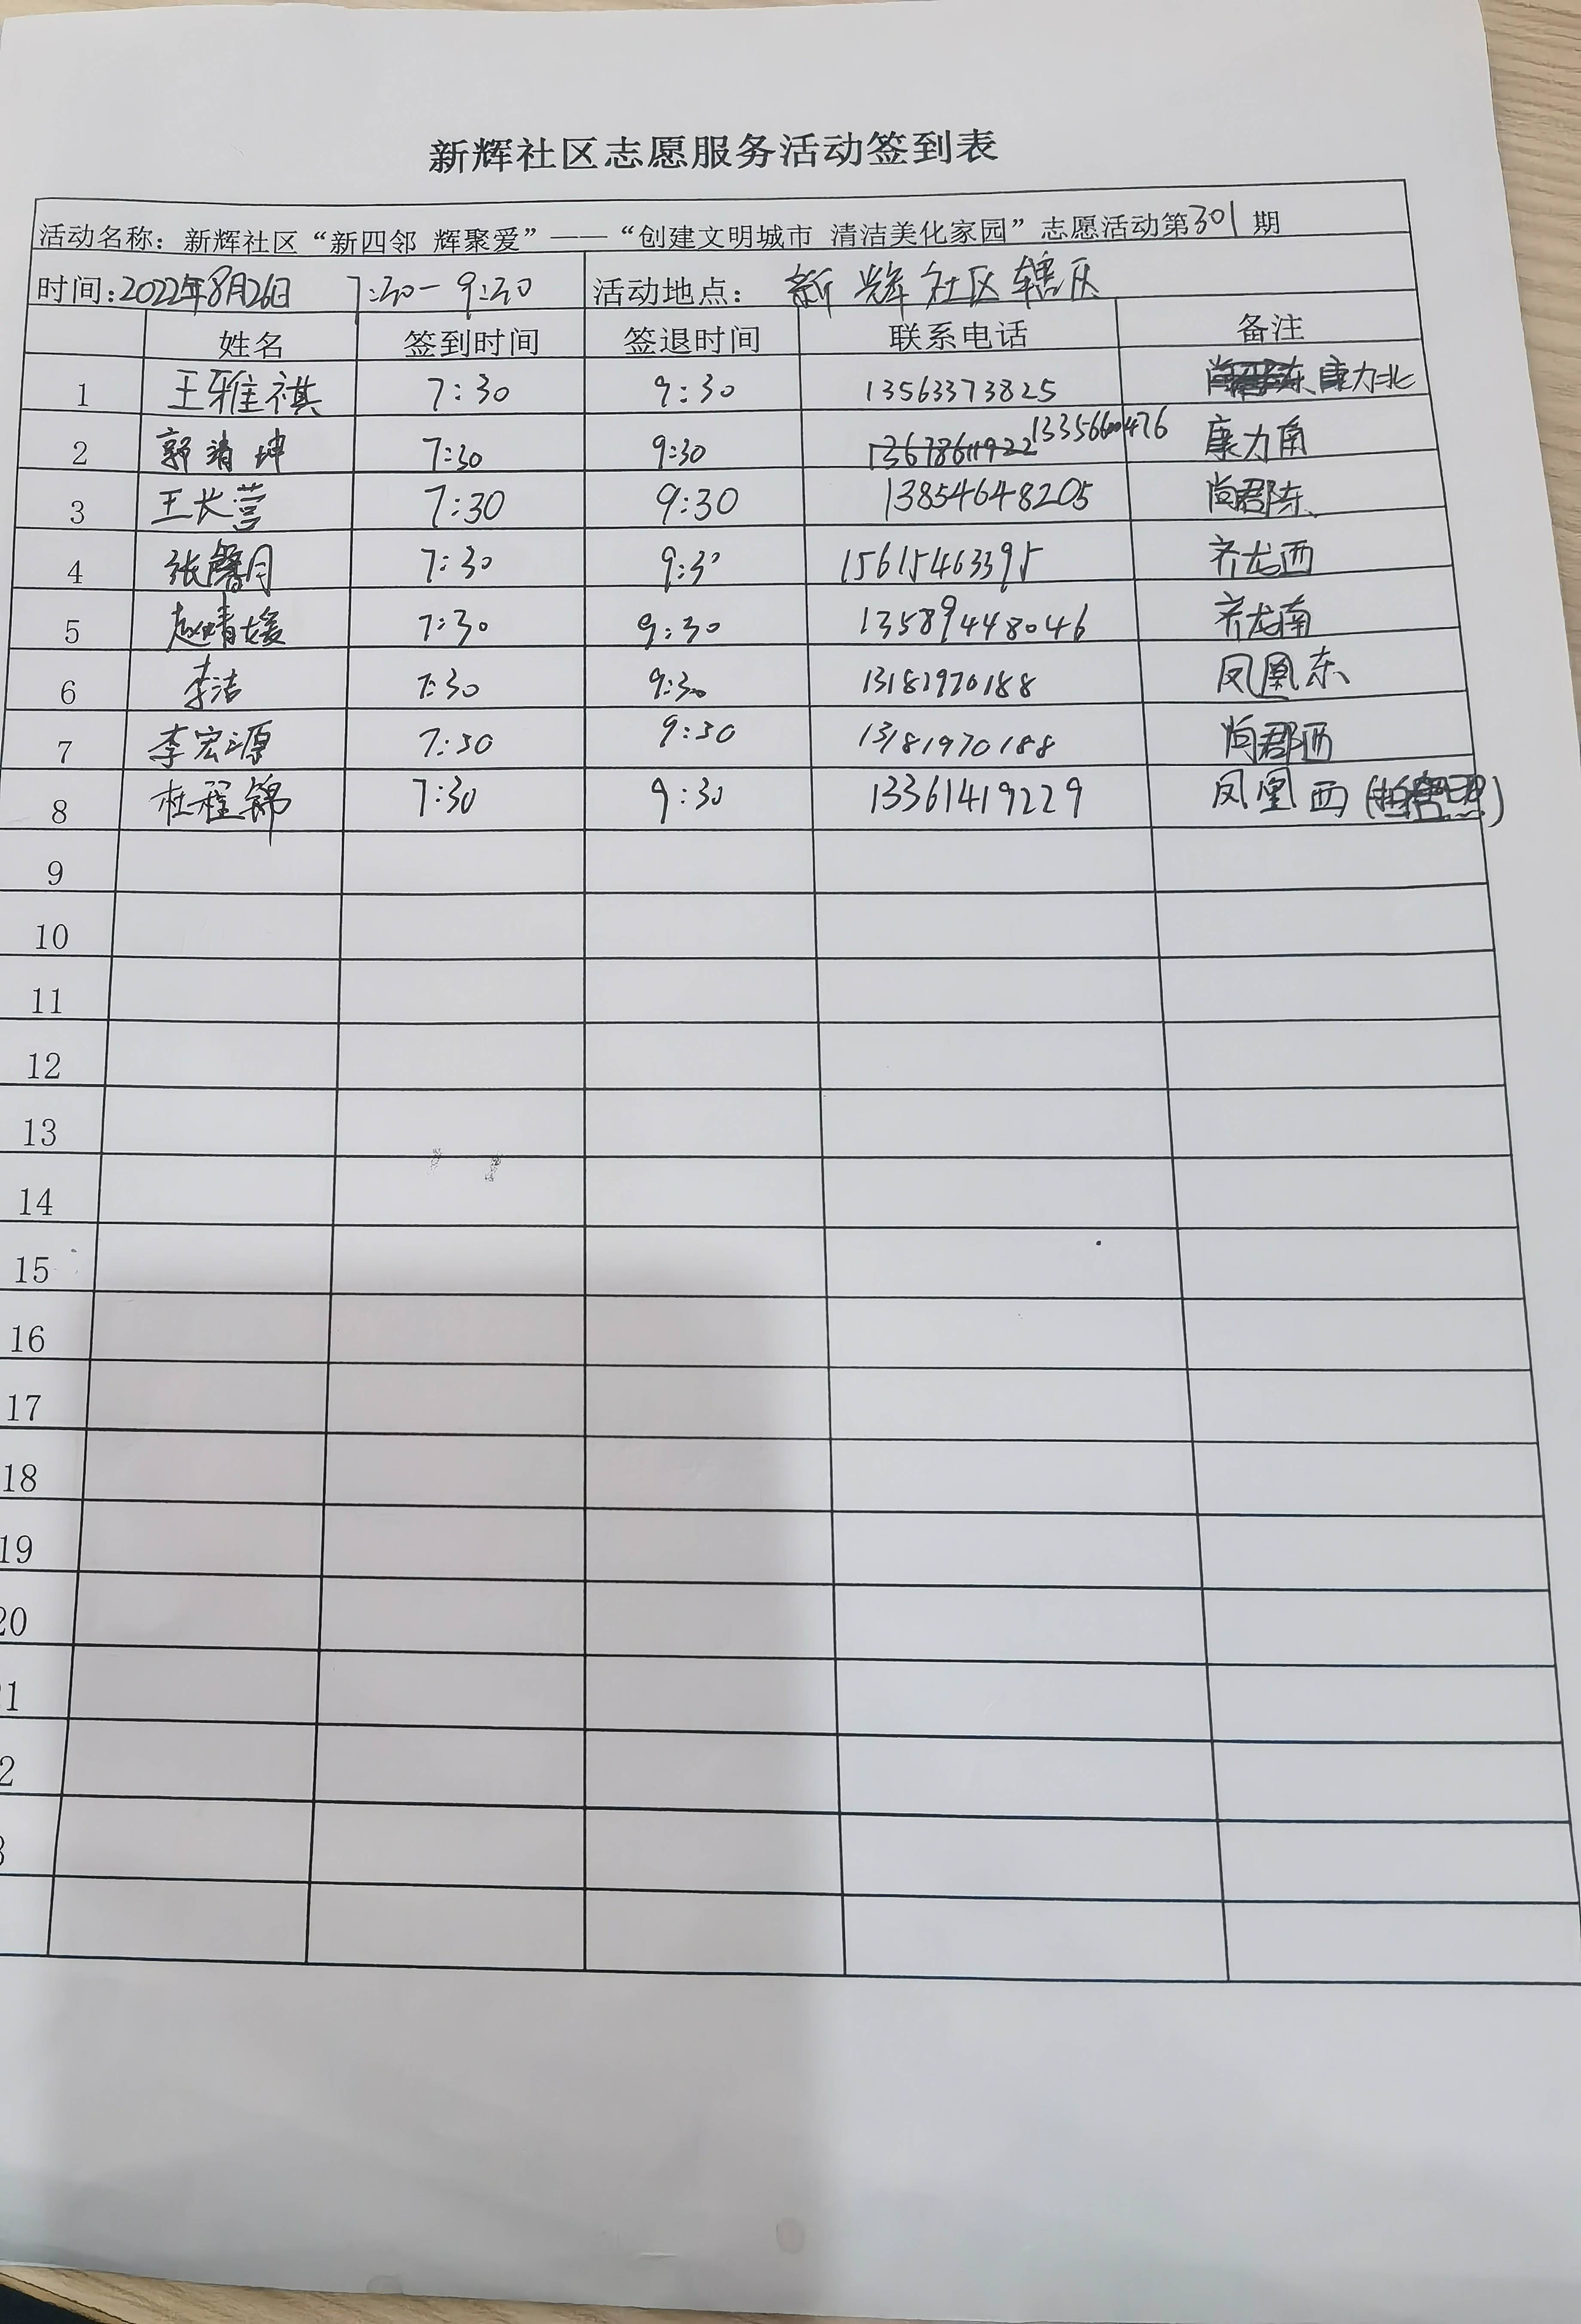 新辉社区志愿服务活动签到表
活动名称：新辉社区“新四邻 辉聚爱”——“创建文明城市 清洁美化家园”志愿活动第301期
时间：2022年8月26日 7:30-9:30 活动地点：新辉社区辖区
姓名 签到时间 签退时间 联系电话 备注
1 王雅祺 7:30 9:30 13563373825 康力北
2 郭靖坤 7:30 9:30 康力南
3 王长营 7:30 9:30 13854648205 尚郡东
4 张馨月 7:30 9:30 15615463395 齐龙西
5 赵晴媛 7:30 9:30 13589448046 齐龙南
6 李洁 7:30 9:30 13181970188 凤凰东
7 李宏源 7:30 9:30 13181970188 尚郡西
8 杜程锦 7:30 9:30 13361419229 凤凰西
9
10
11
12
13
14
15
16
17
18
19
20
1
2
3